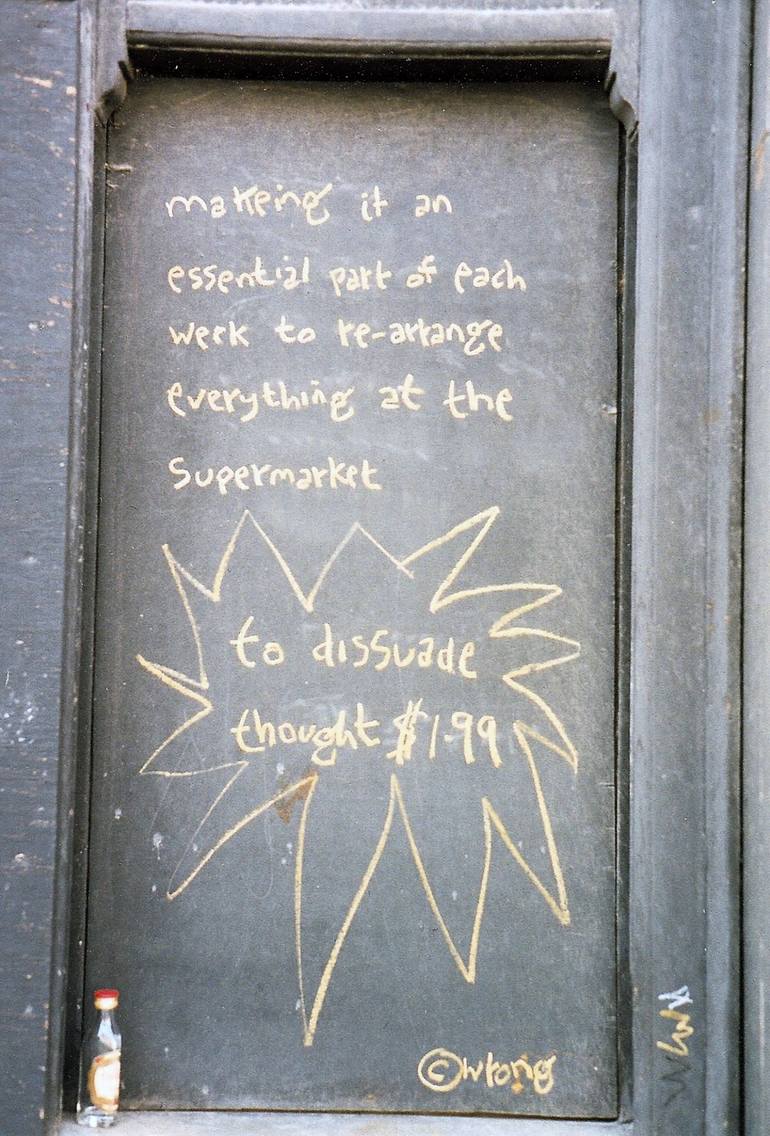 makeing it an
essential part of each
week to re-arrange
everything at the
supermarket
to dissuade
thought $1.99
©wrong